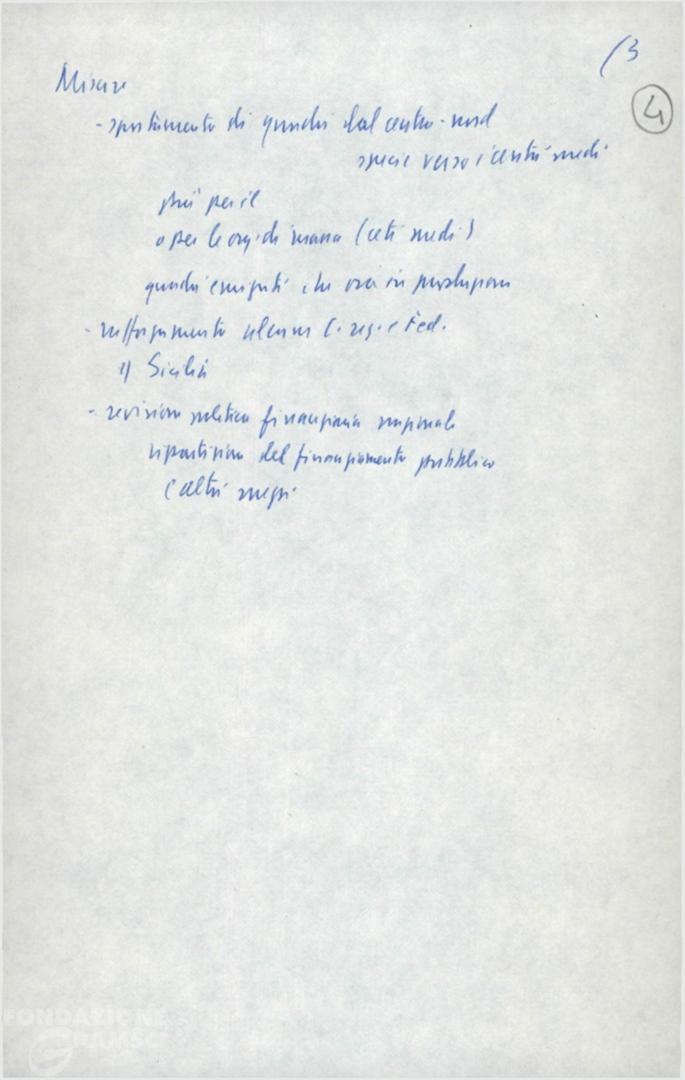 (3
4
Misure
- spostamento di quadri dal centro-nord
specie verso i centri medi
più per il
o per le org. di massa (ceti medi)
quadri emigrati che ora in produzione
- rafforzamento alcuni C. reg. e Fed.
Sicilia
- revisione politica finanziaria nazionale
ripartizione del finanziamento pubblico
e altri mezzi
FONDAZIONE
GRAMSCI